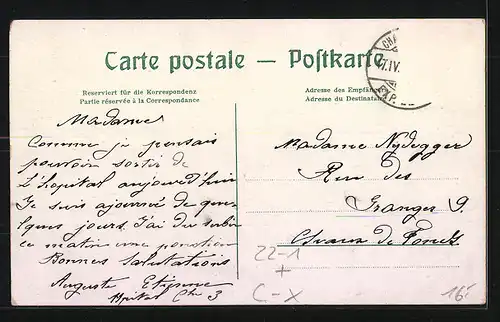 Carte postale — Postkarte
Reserviert für die Korrespondenz
Partie réservée à la Correspondance
Adresse des Empfäng
Adresse du Destinata
CHA
IV.
Madame
Comme je pensais
pouvoir sortir de
L'hopital aujourd'hui
Je suis ajourné de quel-
ques jours. J'ai du subir
ce matin une ponction
Bonnes Salutations
Auguste Etienne
Hpital Ch 3
Madame Nydegger
Rue des
Granges 9.
Chaux de Fonds
22-1
+
C-X
16.